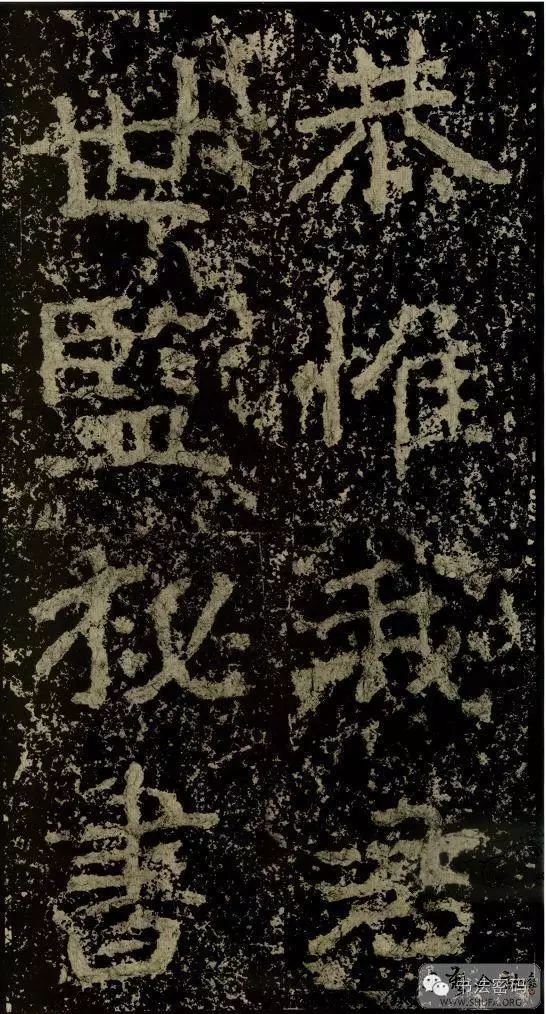 恭惟我君
世監秘書
书法密码
WWW.SHUFA.ORG